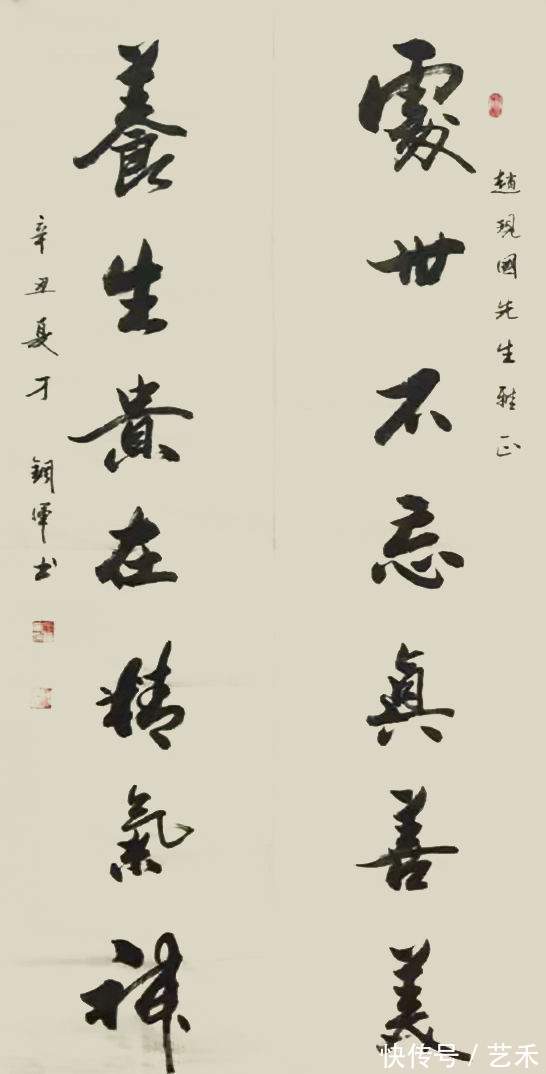 趙現國先生雅正
處世不忘真善美
養生貴在精氣神
辛丑夏才鋼軍书
快传号/艺禾